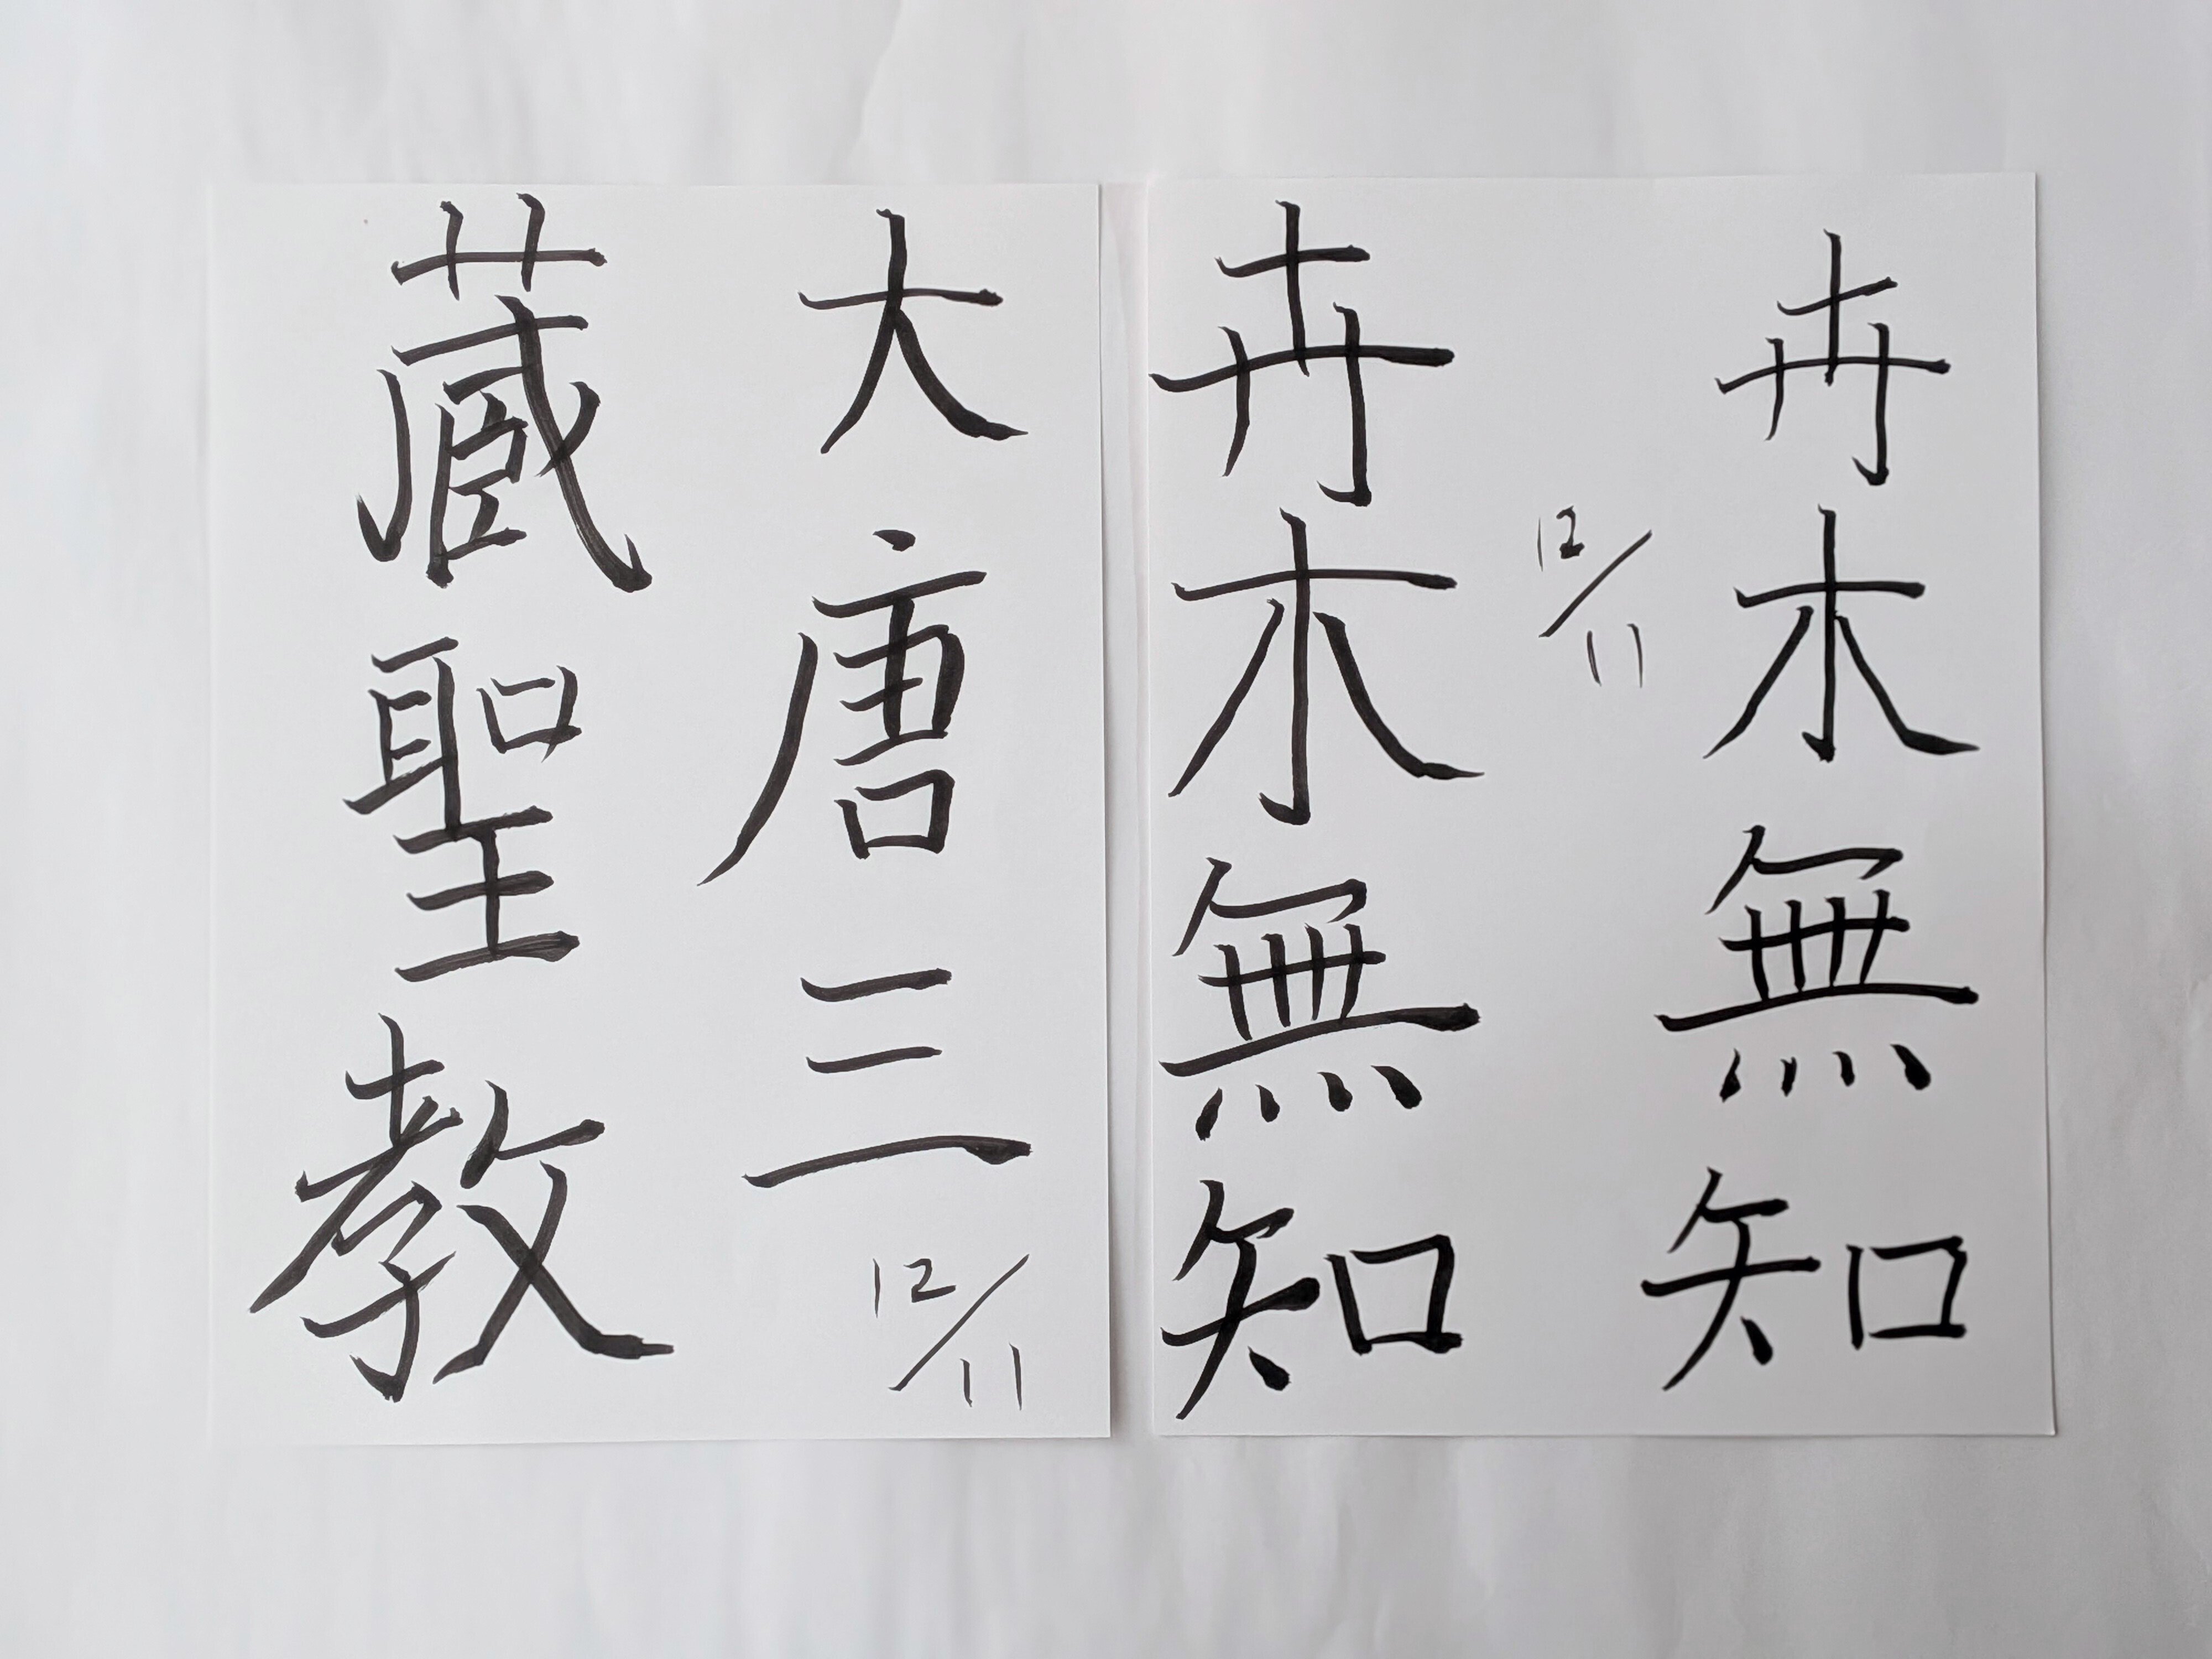 卉木無知
12/11
卉木無知
大唐三
12/11
蔵聖教